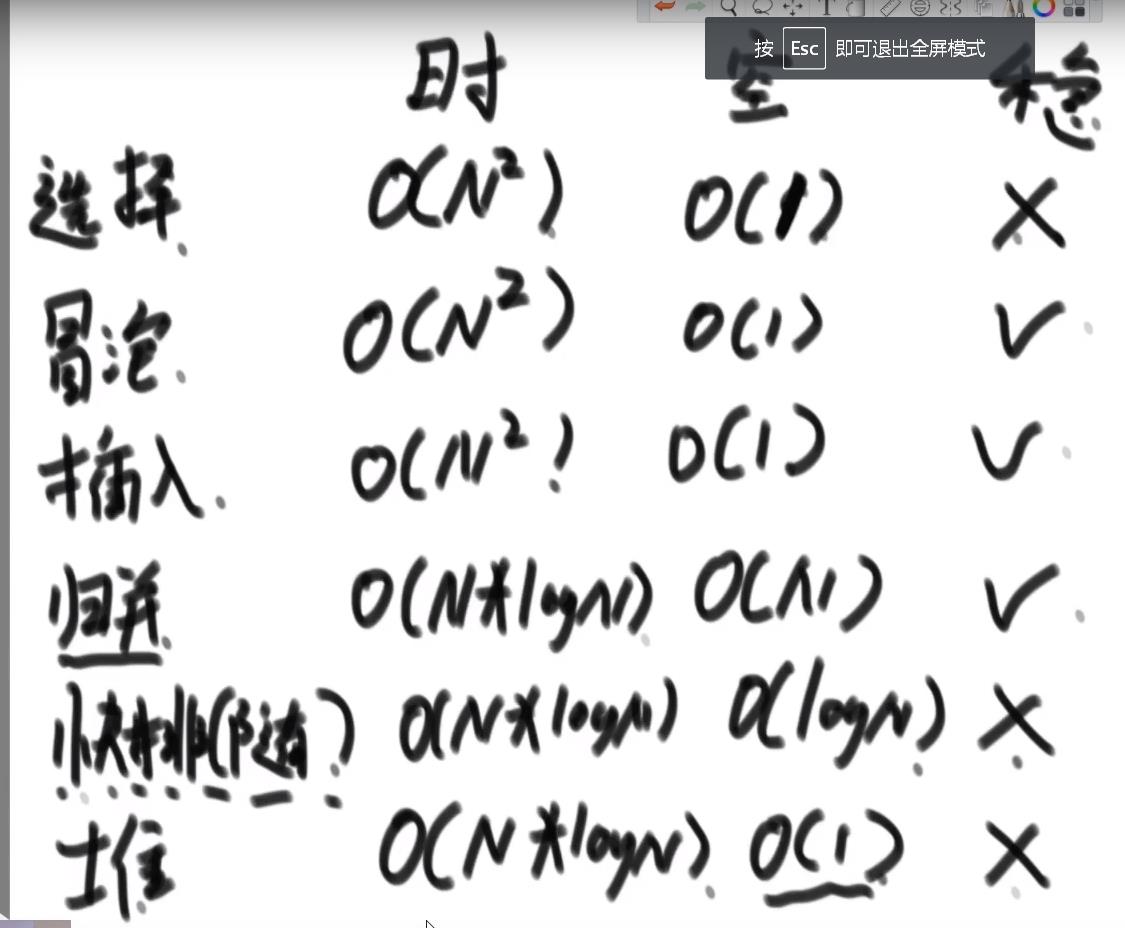 按 Esc 即可退出全屏模式
时 空 稳
选择 O(N²) O(1) ×
冒泡 O(N²) O(1) √
插入 O(N²) O(1) √
归并 O(N*logN) O(N) √
快排(随) O(N*logN) O(logN) ×
堆 O(N*logN) O(1) ×